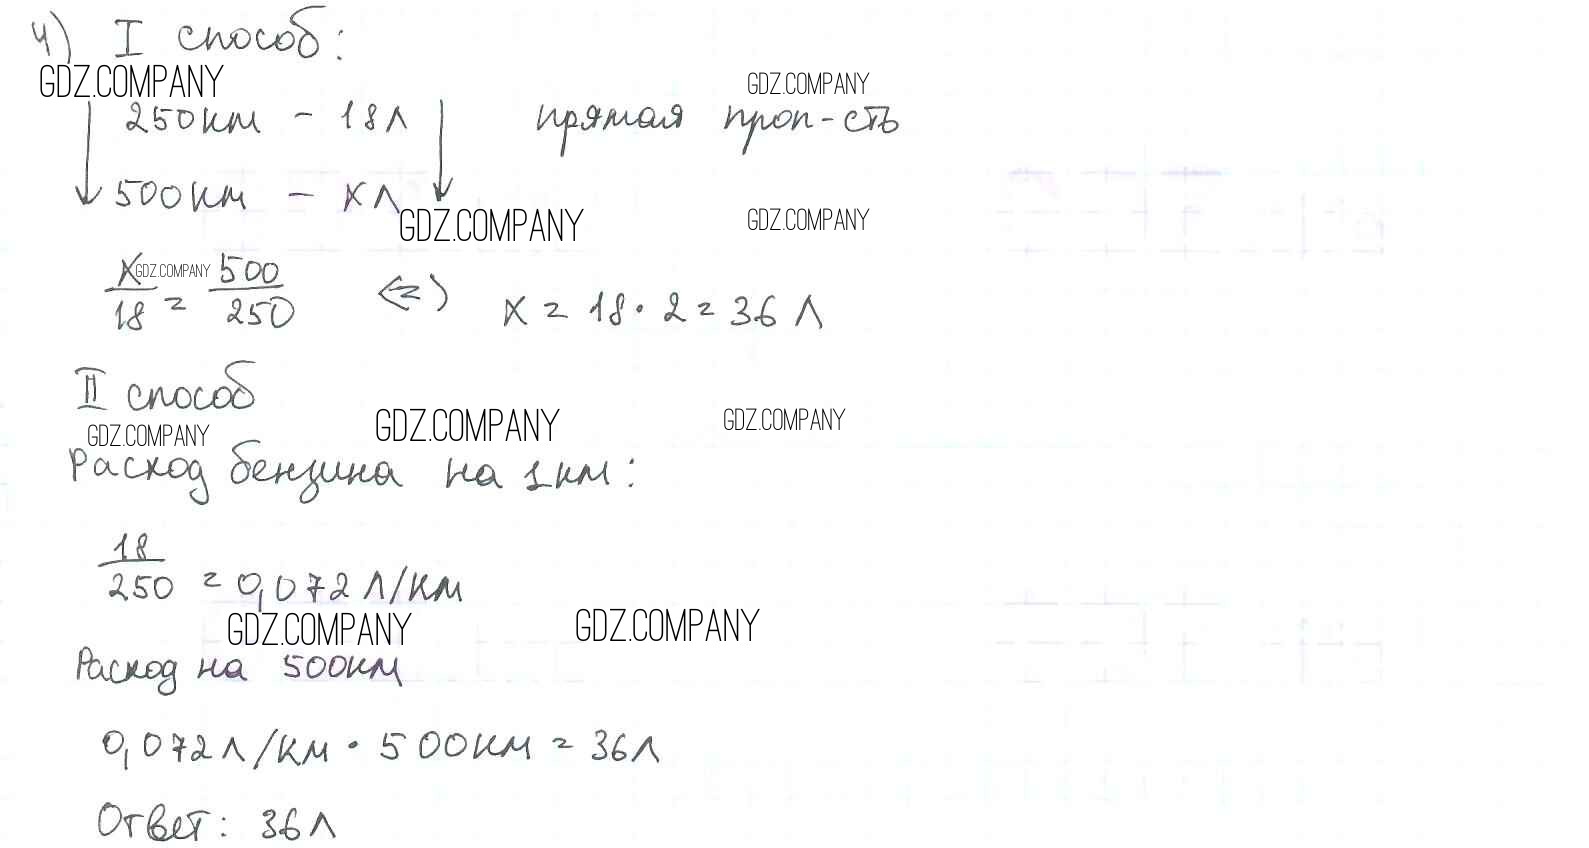 4) I способ:
GDZ.COMPANY
GDZ.COMPANY
250км - 18л прямая проп-сть
500км - х л
GDZ.COMPANY
GDZ.COMPANY
х/18 = 500/250 <=> х = 18 · 2 = 36 л
GDZ.COMPANY
II способ
GDZ.COMPANY
GDZ.COMPANY
GDZ.COMPANY
Расход бензина на 1км:
18/250 = 0,072 л/км
GDZ.COMPANY
GDZ.COMPANY
Расход на 500км
0,072л/км · 500км = 36л
Ответ: 36л